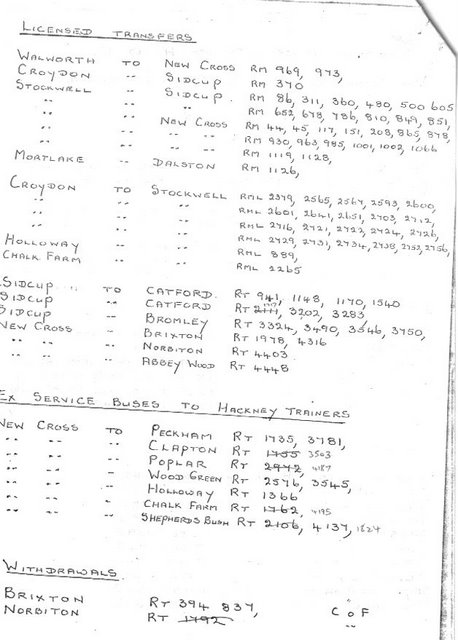 LICENSED TRANSFERS
WALWORTH TO NEW CROSS RM 969, 973,
CROYDON " SIDCUP RM 370
STOCKWELL " SIDCUP RM 86, 311, 360, 480, 500 605
" " " RM 652, 678, 786, 810, 849, 851,
" " NEW CROSS RM 44, 45, 117, 151, 208, 865, 878,
" " " RM 930, 963, 985, 1001, 1002, 1066
MORTLAKE " DALSTON RM 1119, 1128,
RM 1126,
CROYDON TO STOCKWELL RML 2379, 2565, 2567, 2593, 2600,
" " " RML 2601, 2641, 2651, 2703, 2712,
" " " RML 2716, 2721, 2722, 2724, 2726,
" " " RML 2729, 2731, 2734, 2738, 2752, 2756
HOLLOWAY " " RML 889,
CHALK FARM " " RML 2265
SIDCUP " TO CATFORD RT 941, 1148, 1170, 1540
SIDCUP " CATFORD RT 3202, 3283,
SIDCUP " BROMLEY RT 3324, 3490, 3546, 3750,
NEW CROSS " BRIXTON RT 1978, 4316
" " " NORBITON RT 4403
" " " ABBEY WOOD RT 4448
EX SERVICE BUSES TO HACKNEY TRAINERS
NEW CROSS TO PECKHAM RT 1735, 3781,
" " " CLAPTON RT 1755 3503
" " " POPLAR RT 2972, 4187
" " " WOOD GREEN RT 2576, 3545,
" " " HOLLOWAY RT 1366
" " " CHALK FARM RT 1762, 4195
" " " SHEPHERDS BUSH RT 2106, 4137, 1824
WITHDRAWALS
BRIXTON RT 394 837, C of F
NORBITON RT 1792 "